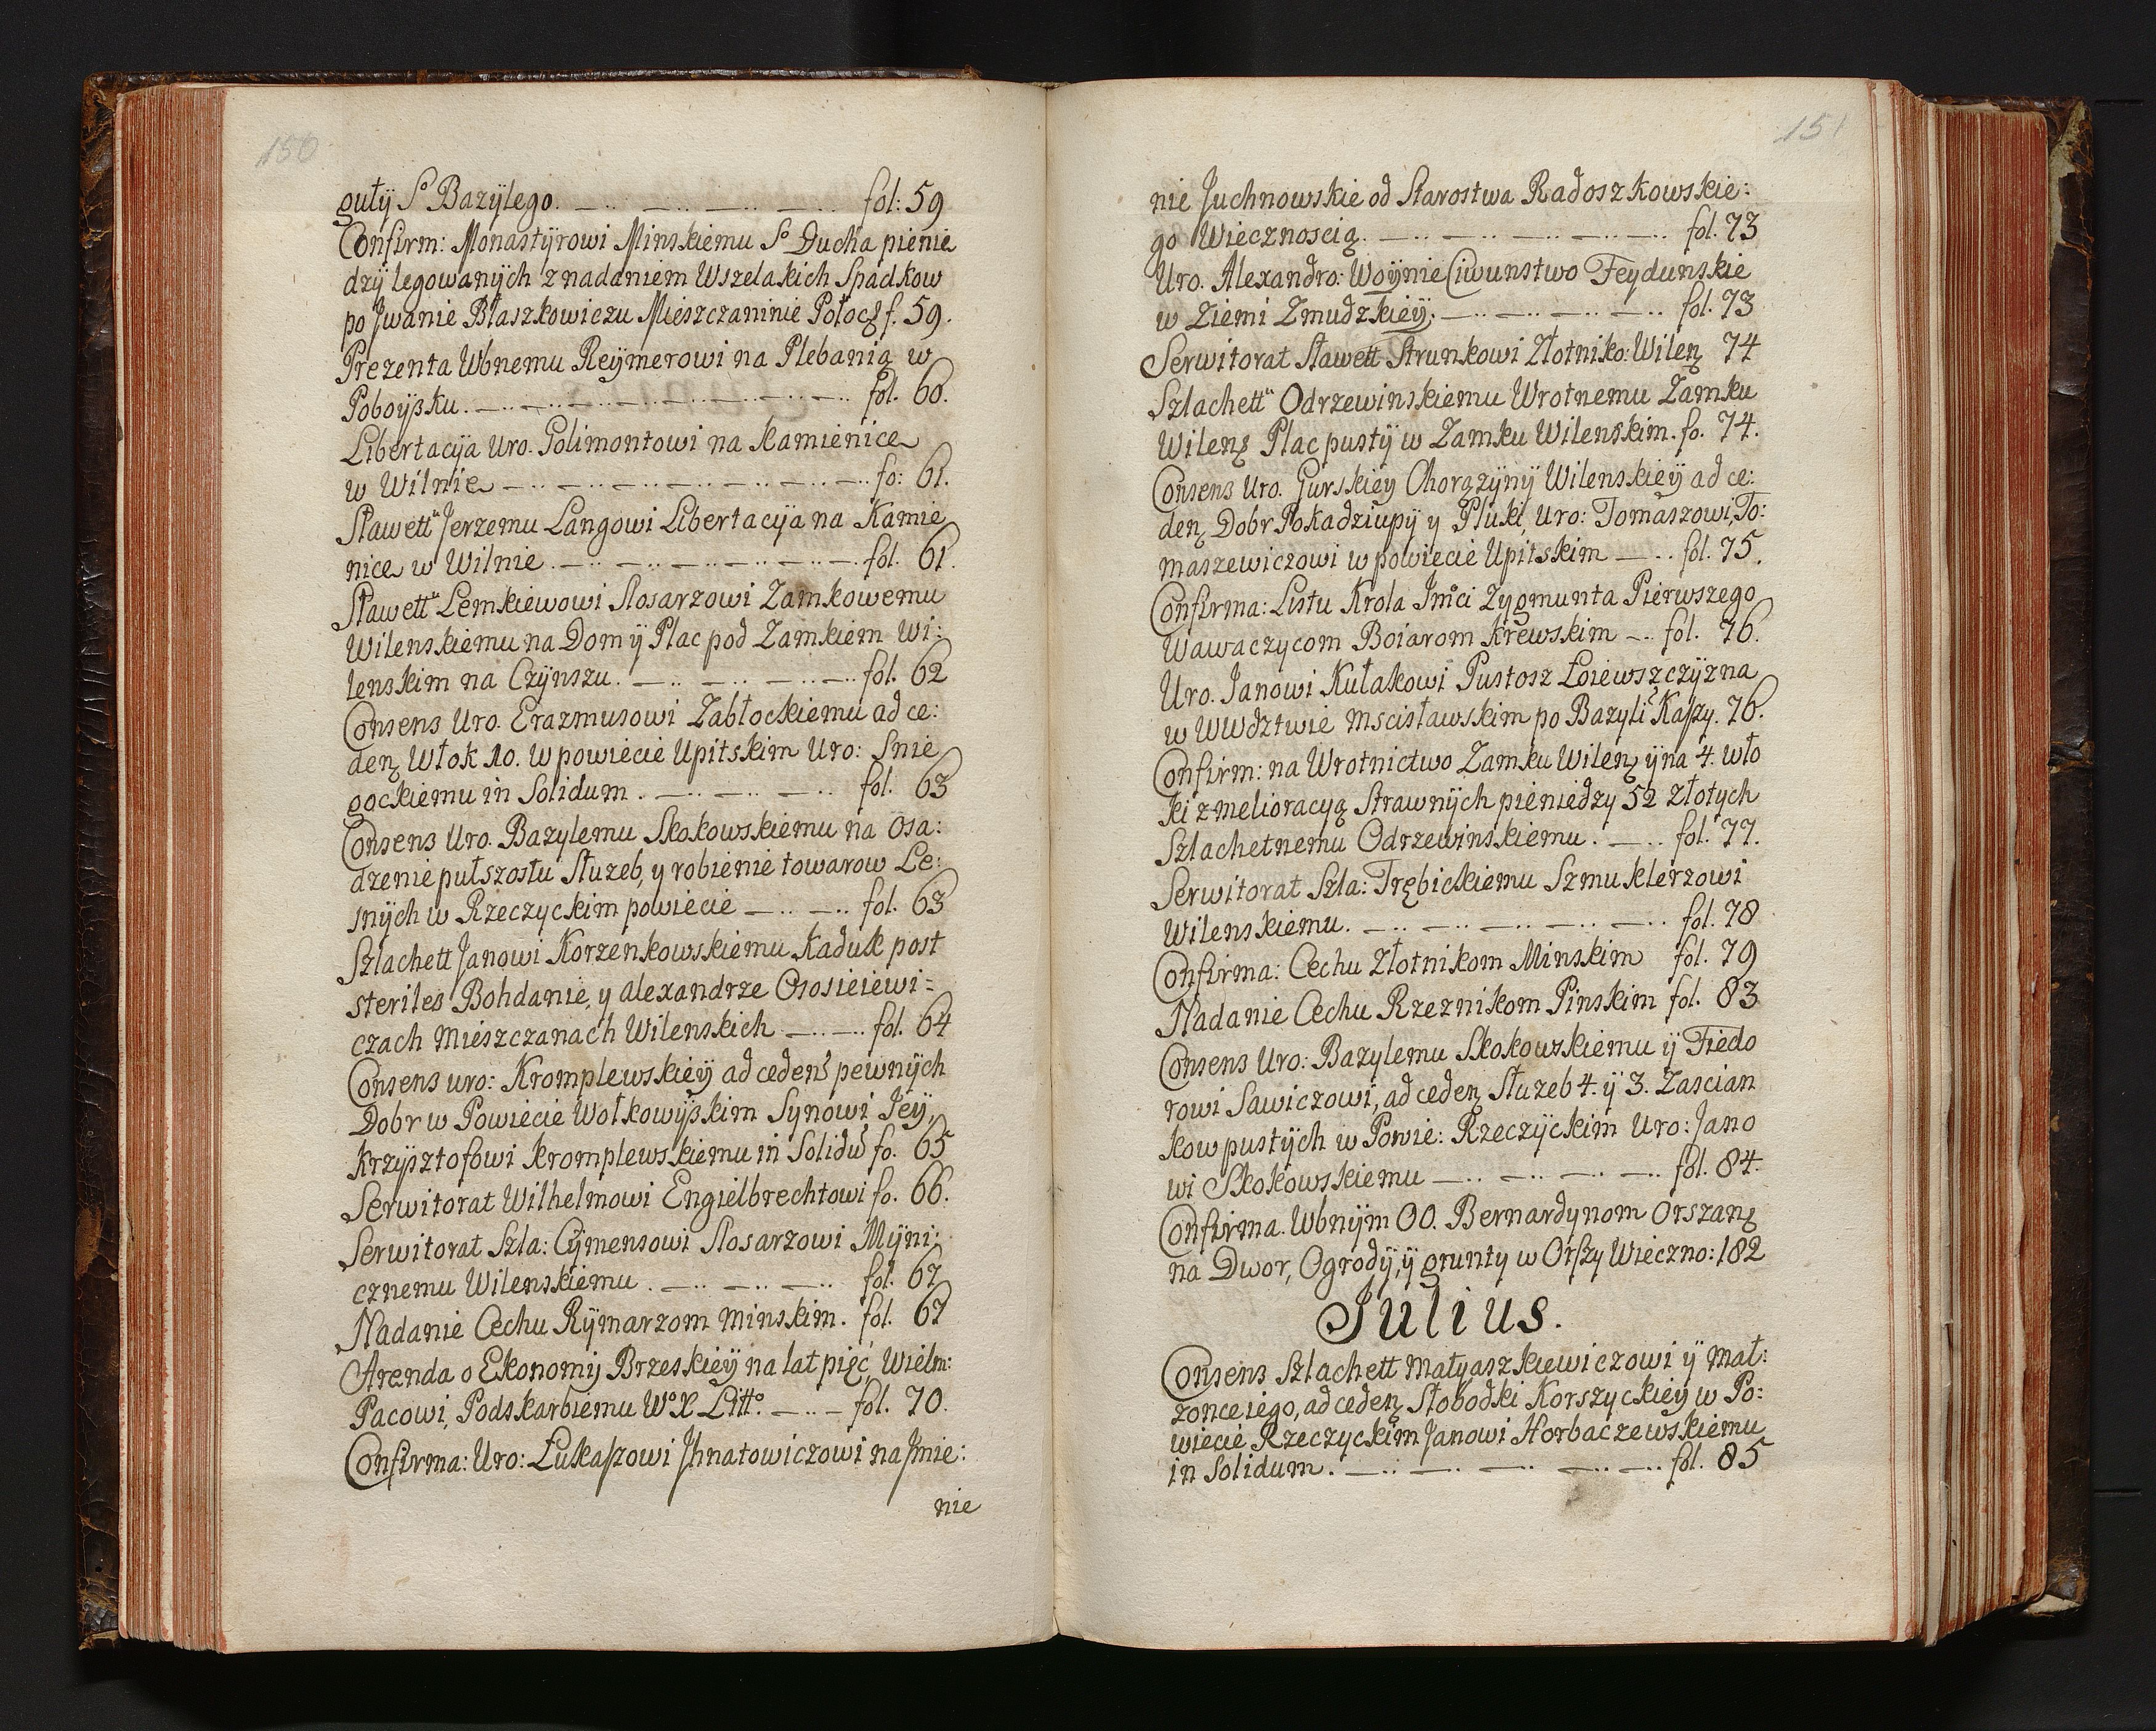 150
guły Sº Bazÿlego. fol: 59
Confirm: Monastÿrowi Minskiemu Sº Ducha pienie
dzÿ legowanÿch z nadaniem Wszelakich Spadkow
po Jwanie Błaszkowiczu Mieszczaninie Połocꝫ f. 59.
Prezenta Wbnemu Reÿmerowi na Plebanią w
Poboÿsku. fol. 60.
Libertacÿa Uro. Polimontowi na Kamienice
w Wilnie fo: 61.
Sławett" Jerzemu Langowi Libertacÿa na Kamie
nice w Wilnie. fol. 61.
Sławett" Lemkiewowi Slosarzowi Zamkowemu
Wilenskiemu na Dom ÿ Plac pod Zamkiem Wi:
lenskim na Czÿnszu. fol. 62
Consens Uro. Erazmusowi Zabłockiemu ad ce:
denꝫ Włok 10. w powiecie Upitskim Uro: Snie
gockiemu in Solidum. fol. 63
Consens Uro. Bazylemu Skokowskiemu na Osa:
dzenie pułszostu Służeb, y robienie towarow Le:
snÿch w Rzeczyckim powiecie fol. 63
Szlachett Janowi Korzenkowskiemu Kaduk post
steriles Bohdanie, y Alexandrze Ososieiewi=
czach Mieszczanach Wilenskich fol. 64
Consens uro: Kromplewskieÿ ad cedens pewnÿch
Dobr w Powiecie Wołkowÿskim Synowi Jeÿ,
Krzÿsztofowi Kromplewskiemu in Solidū fo. 65
Serwitorat Wilhelmowi Engielbrechtowi fo. 66.
Serwitorat Szla: Cÿmensowi Slosarzowi Mÿni:
cznemu Wilenskiemu. fol. 67
Nadanie Cechu Rÿmarzom Minskim. fol. 67
Arenda o Ekonomij Brzeskieÿ na lat pięć, Wielm:
Pacowi, Podskarbiemu Wº X Littº. fol. 70.
Confirma: Uro: Łukaszowi Jhnatowiczowi na Jmie:
nie
151
nie Juchnowskie od Starostwa Radoszkowskie:
go Wiecznoscią. fol. 73
Uro. Alexandro: Woÿnie Ciwunstwo Feydunskie
w Ziemi Zmudzkieÿ. fol. 73
Serwitorat Sławett Strunkowi Złotniko: Wilenꝫ 74
Szlachett" Odrzewinskiemu Wrotnemu Zamku
Wilenꝫ Plac pustÿ w Zamku Wilenskim. fo. 74.
Consens Uro. Gurskiey Chorązÿnÿ Wilenskieÿ ad ce:
denꝫ Dobr Pokadziupÿ y Pluki, Uro: Tomaszowi, To:
maszewiczowi w powiecie Upitskim fol. 75.
Confirma: Listu Krola Jmci Zygmunta Pierwszego
Wawaczycom Boiarom Krewskim fol. 76.
Uro. Janowi Kułakowi Pustosz Łoiewszczÿzna
w WWdztwie Mscisławskim po Bazyli Kaszy. 76.
Confirm: na Wrotnictwo Zamku Wilenꝫ ÿ na 4. wło
ki z melioracyą Strawnÿch pieniedzy 52 złotych
Szlachetnemu Odrzewinskiemu. fol. 77.
Serwitorat Szla: Trębickiemu Szmuklerzowi
Wilenskiemu. fol. 78
Confirma: Cechu Złotnikom Minskim fol. 79
Nadanie Cechu Rzeznikom Pinskim fol. 83
Consens Uro: Bazylemu Skokowskiemu ÿ Fiedo
rowi Sawiczowi, ad cedenꝫ Służeb 4. ÿ 3. Zascian
kow pustÿch w Powie: Rzeczÿckim Uro: Jano
wi Skokowskiemu fol. 84.
Confirma. Wbnÿm OO. Bernardynom Orszanꝫ
na Dwor, Ogrodÿ, ÿ grunty w Orszy Wieczno: 182
Julius.
Consens Szlachett Matyaszkiewiczowi ÿ Mał:
zonce iego, ad cedenꝫ Słobodki Korszyckieÿ w Po:
wiecie Rzeczyckim Janowi Horbaczewskiemu
in Solidum. fol. 85